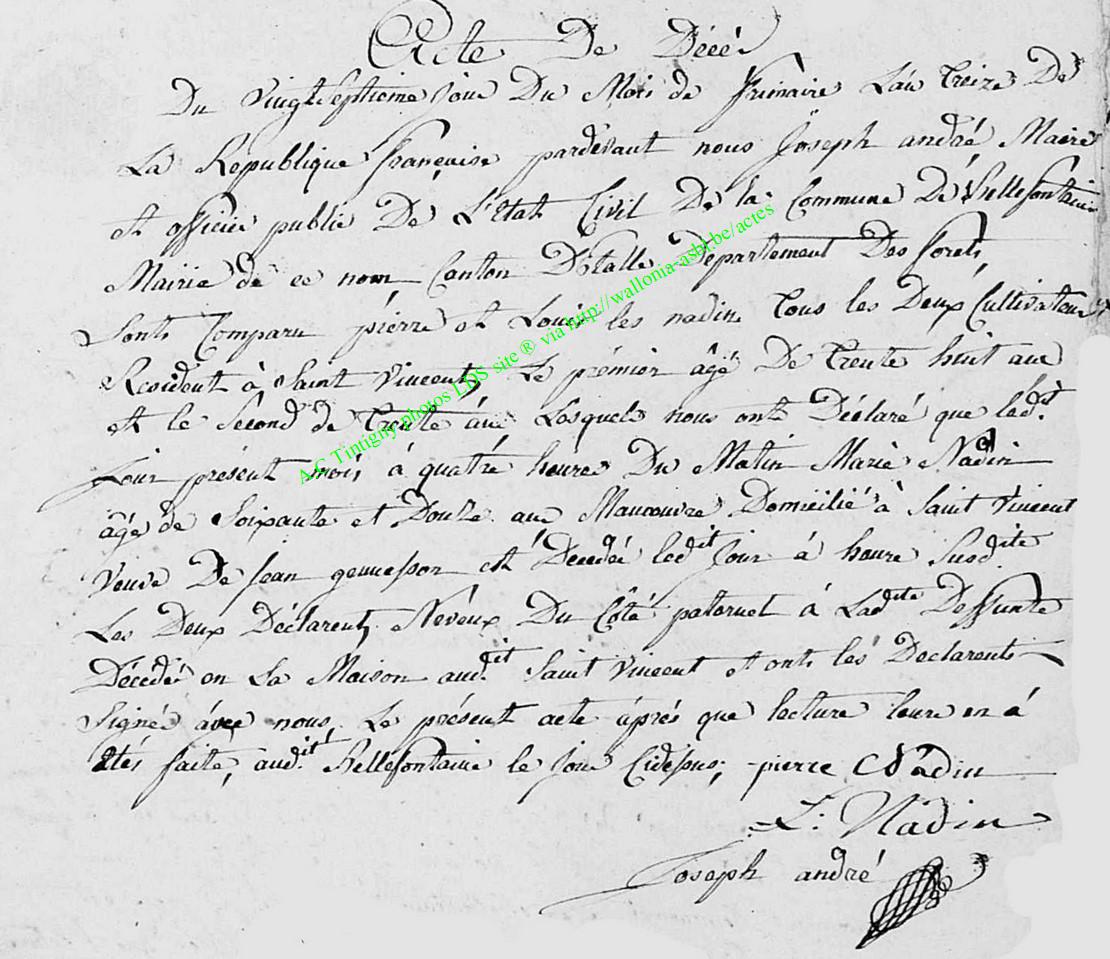 Acte De Décés
Du Vingtseptieme jour Du Mois de frimaire L'an treize De
La République françaisse pardevant nous Joseph andré Maire
et officier public De L'Etat Civil De la Commune De Bellefontaine
Mairie de ce nom Canton D'Etalle Département Des forets,
Sonts Comparu pierre et Louis les nadin tous les Deux Cultivateurs
Résident à Saint Vincent, Le prémier âgé De trente huit ans
et le Second de trente ans Lesquels nous ont Déclaré que ledit
Jour présent mois à quatre heures Du Matin Marie Nadin
âgé de Soixante et Douze ans Manouvre Domicilié à Saint Vincent
Veuve De jean est Decedée ledit Jour à heure Susdite
Les Deux Déclarent, Néveux Du Côté paternel à Ladite Deffunte
Décédée en La Maison audit Saint Vincent et onts les Declarents
Signé avec nous Le présent acte aprés que lecture leure en á
étés faite, audit Bellefontaine le jour Cidessus; pierre Nadin
L: Nadin
Joseph andré
A.C Tintigny photos LDS site ® via http://wallonia-asbl.be/actes